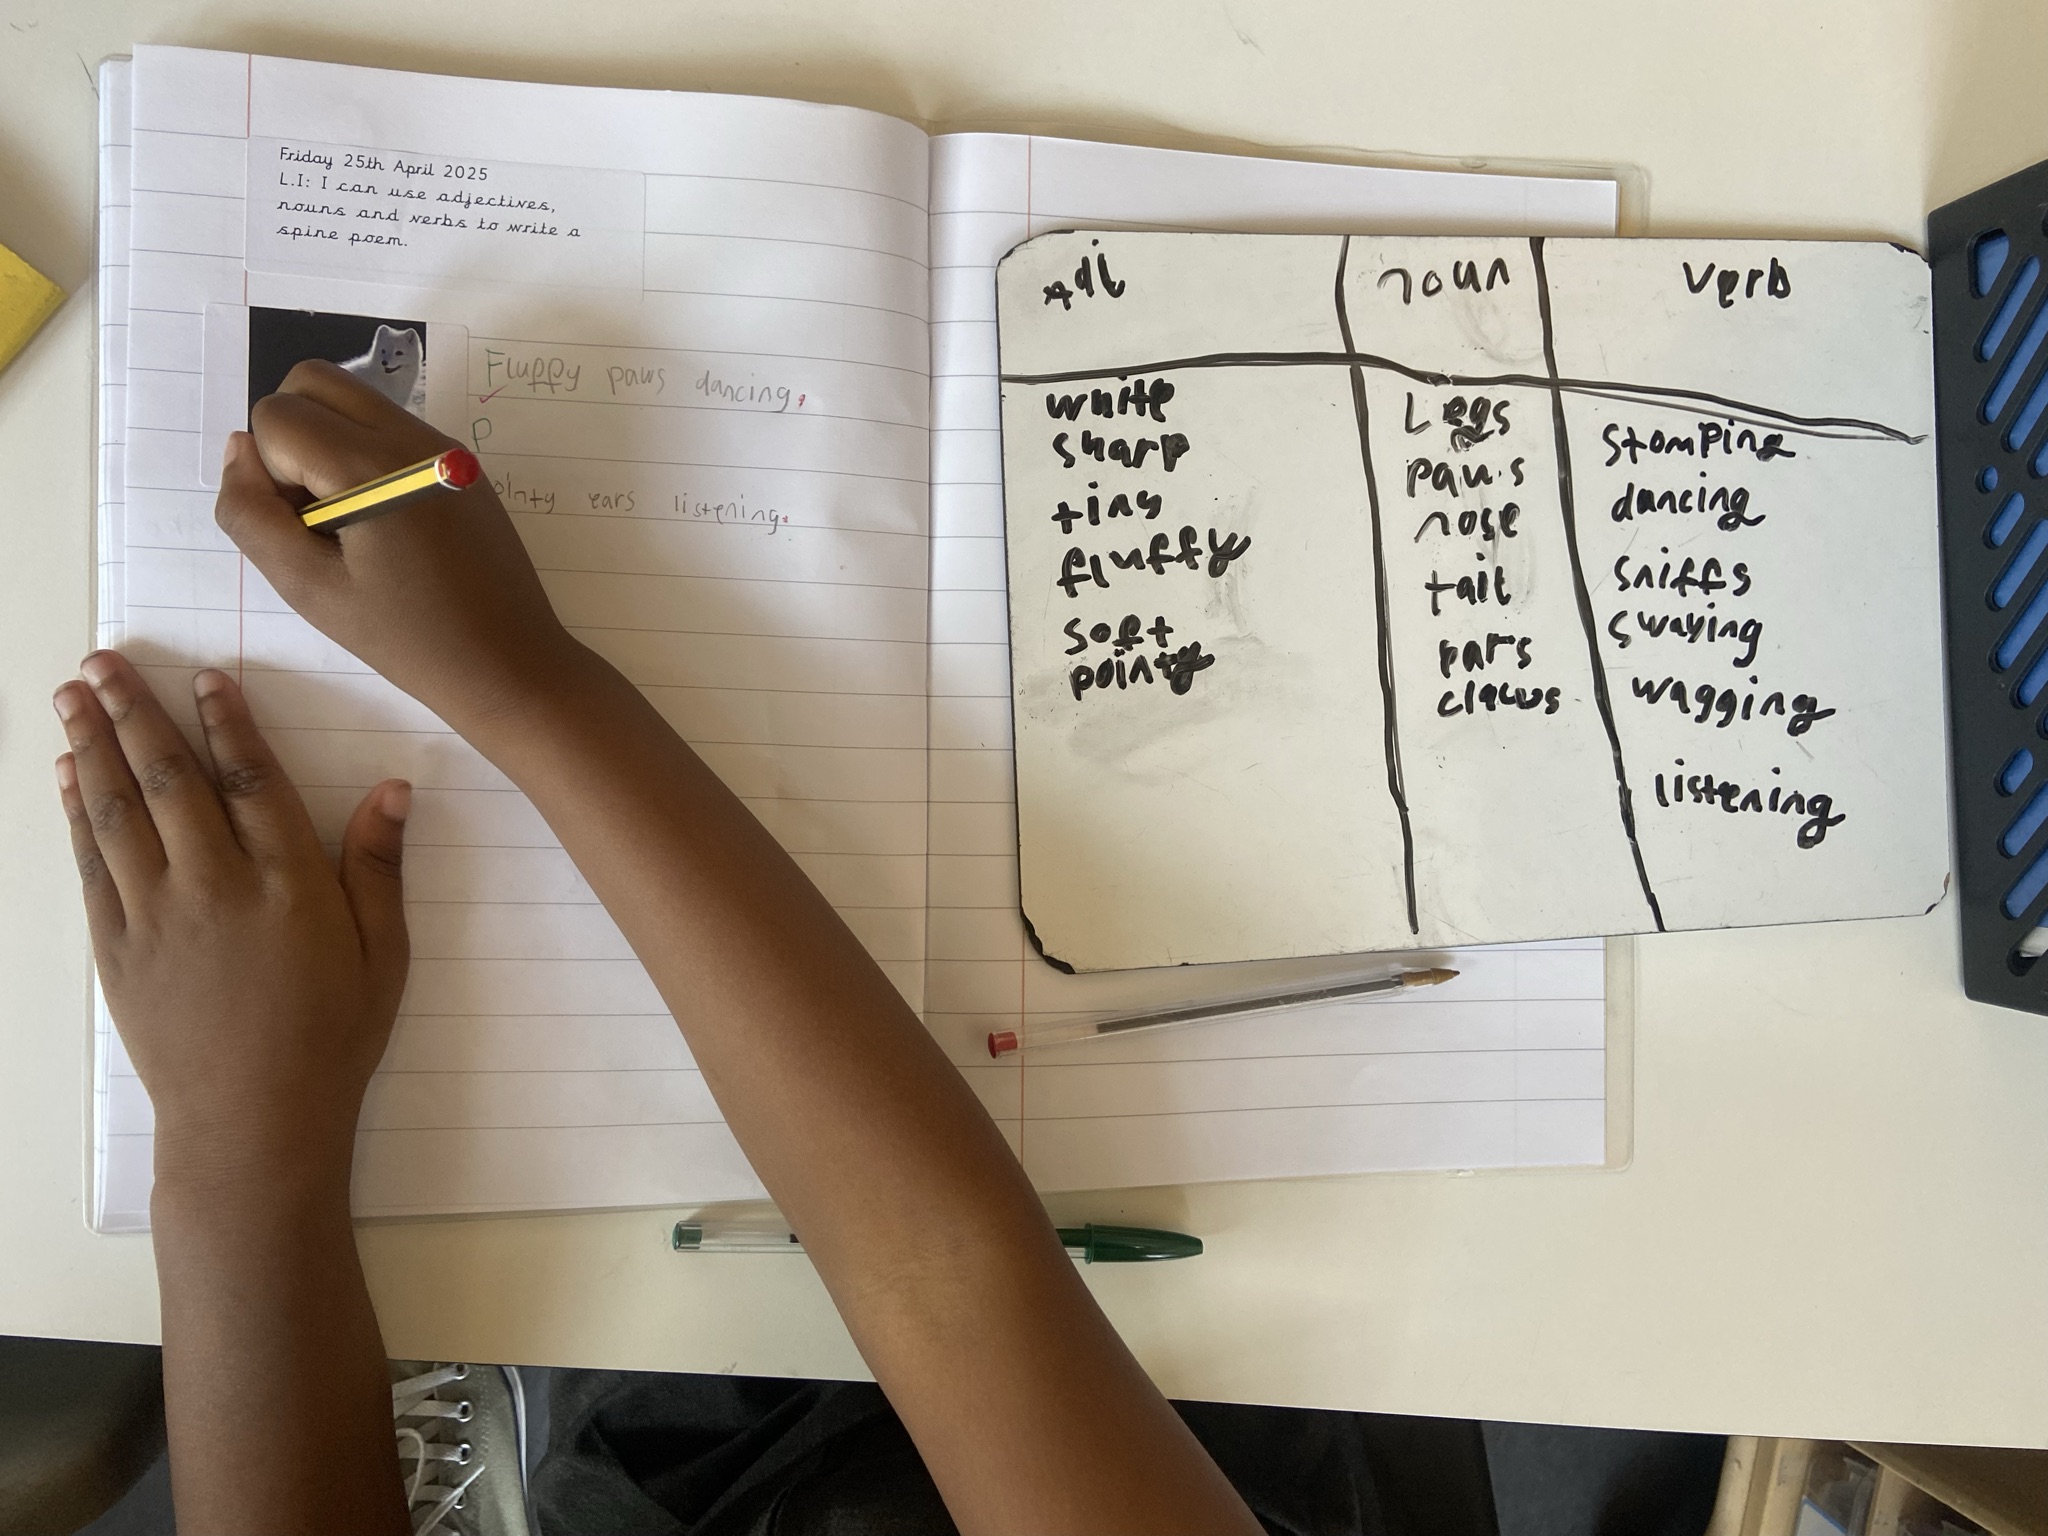 Friday 25th April 2025
L.I: I can use adjectives,
nouns and verbs to write a
spine poem.
Fluffy paws dancing.
P
ointy ears listening.
adj noun verb
white
sharp
tiny
fluffy
soft
pointy
Legs
paws
nose
tail
ears
claws
stomping
dancing
sniffs
swaying
wagging
listening